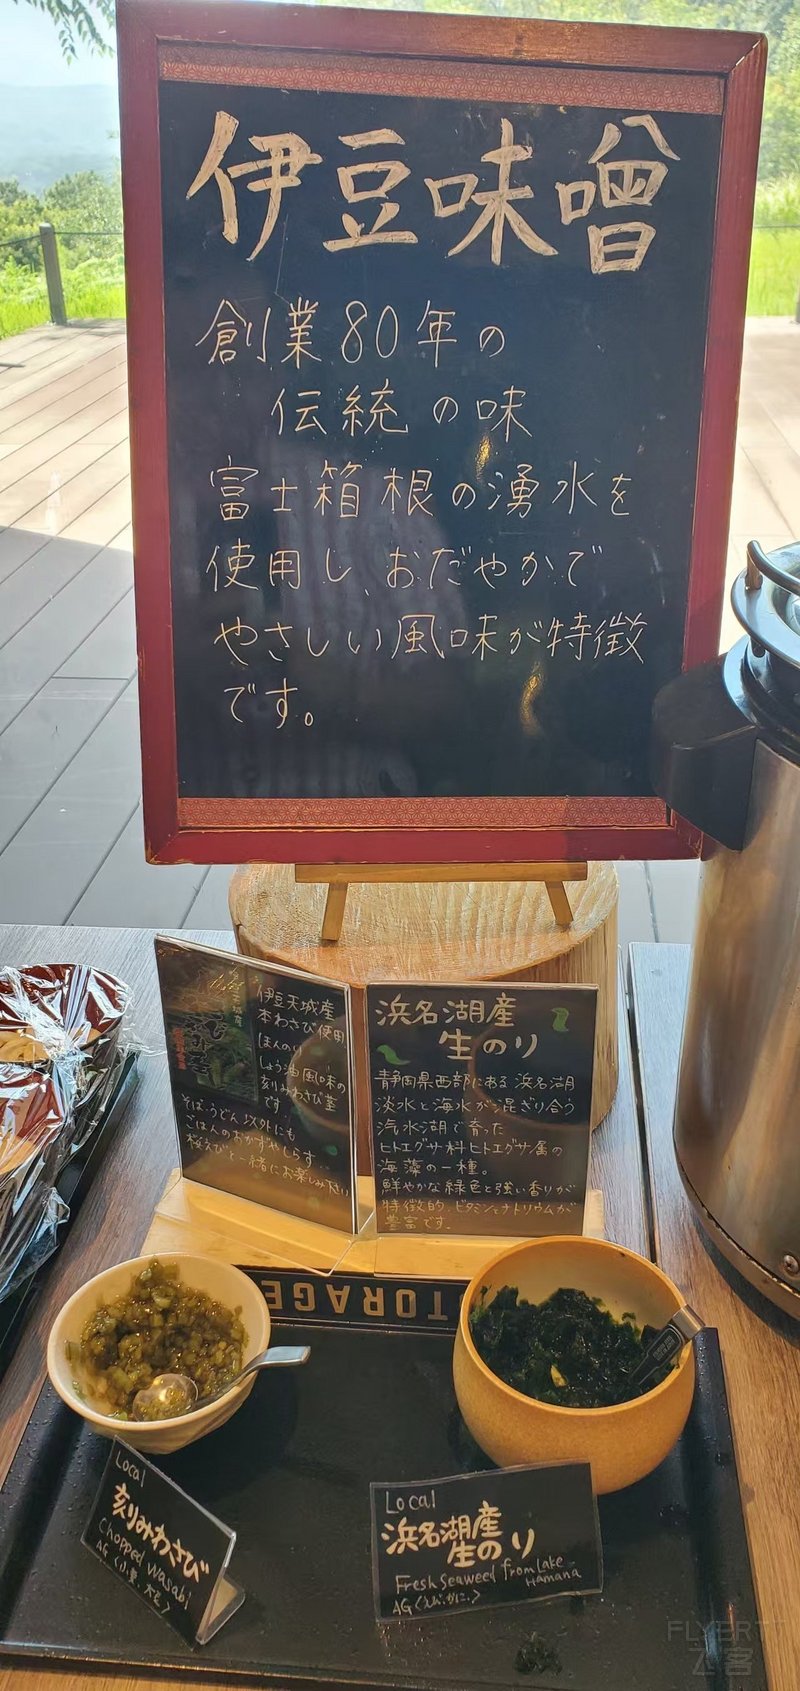 伊豆味噌
創業80年の
伝統の味
富士箱根の湧水を
使用し、おだやかで
やさしい風味が特徴
です。
伊豆天城産
本わさび使用
ほんのり
しょう油風味の
刻みわさび茎
です
そば、うどん以外にも
ごはんのおかずやしらす、
桜えびと一緒にお楽しみ下さい
浜名湖産
生のり
静岡県西部にある浜名湖
淡水と海水が混ざり合う
汽水湖で育った
ヒトエグサ科ヒトエグサ属の
海藻の一種。
鮮やかな緑色と強い香りが
特徴的、ビタミンとナトリウムが
豊富です。
TORAGE
Local
刻みわさび
Chopped wasabi
AG〈小麦、大豆〉
Local
浜名湖産
生のり
Fresh seaweed from Lake
Hamana
AG〈えび、かに〉
FLYERT
飞客